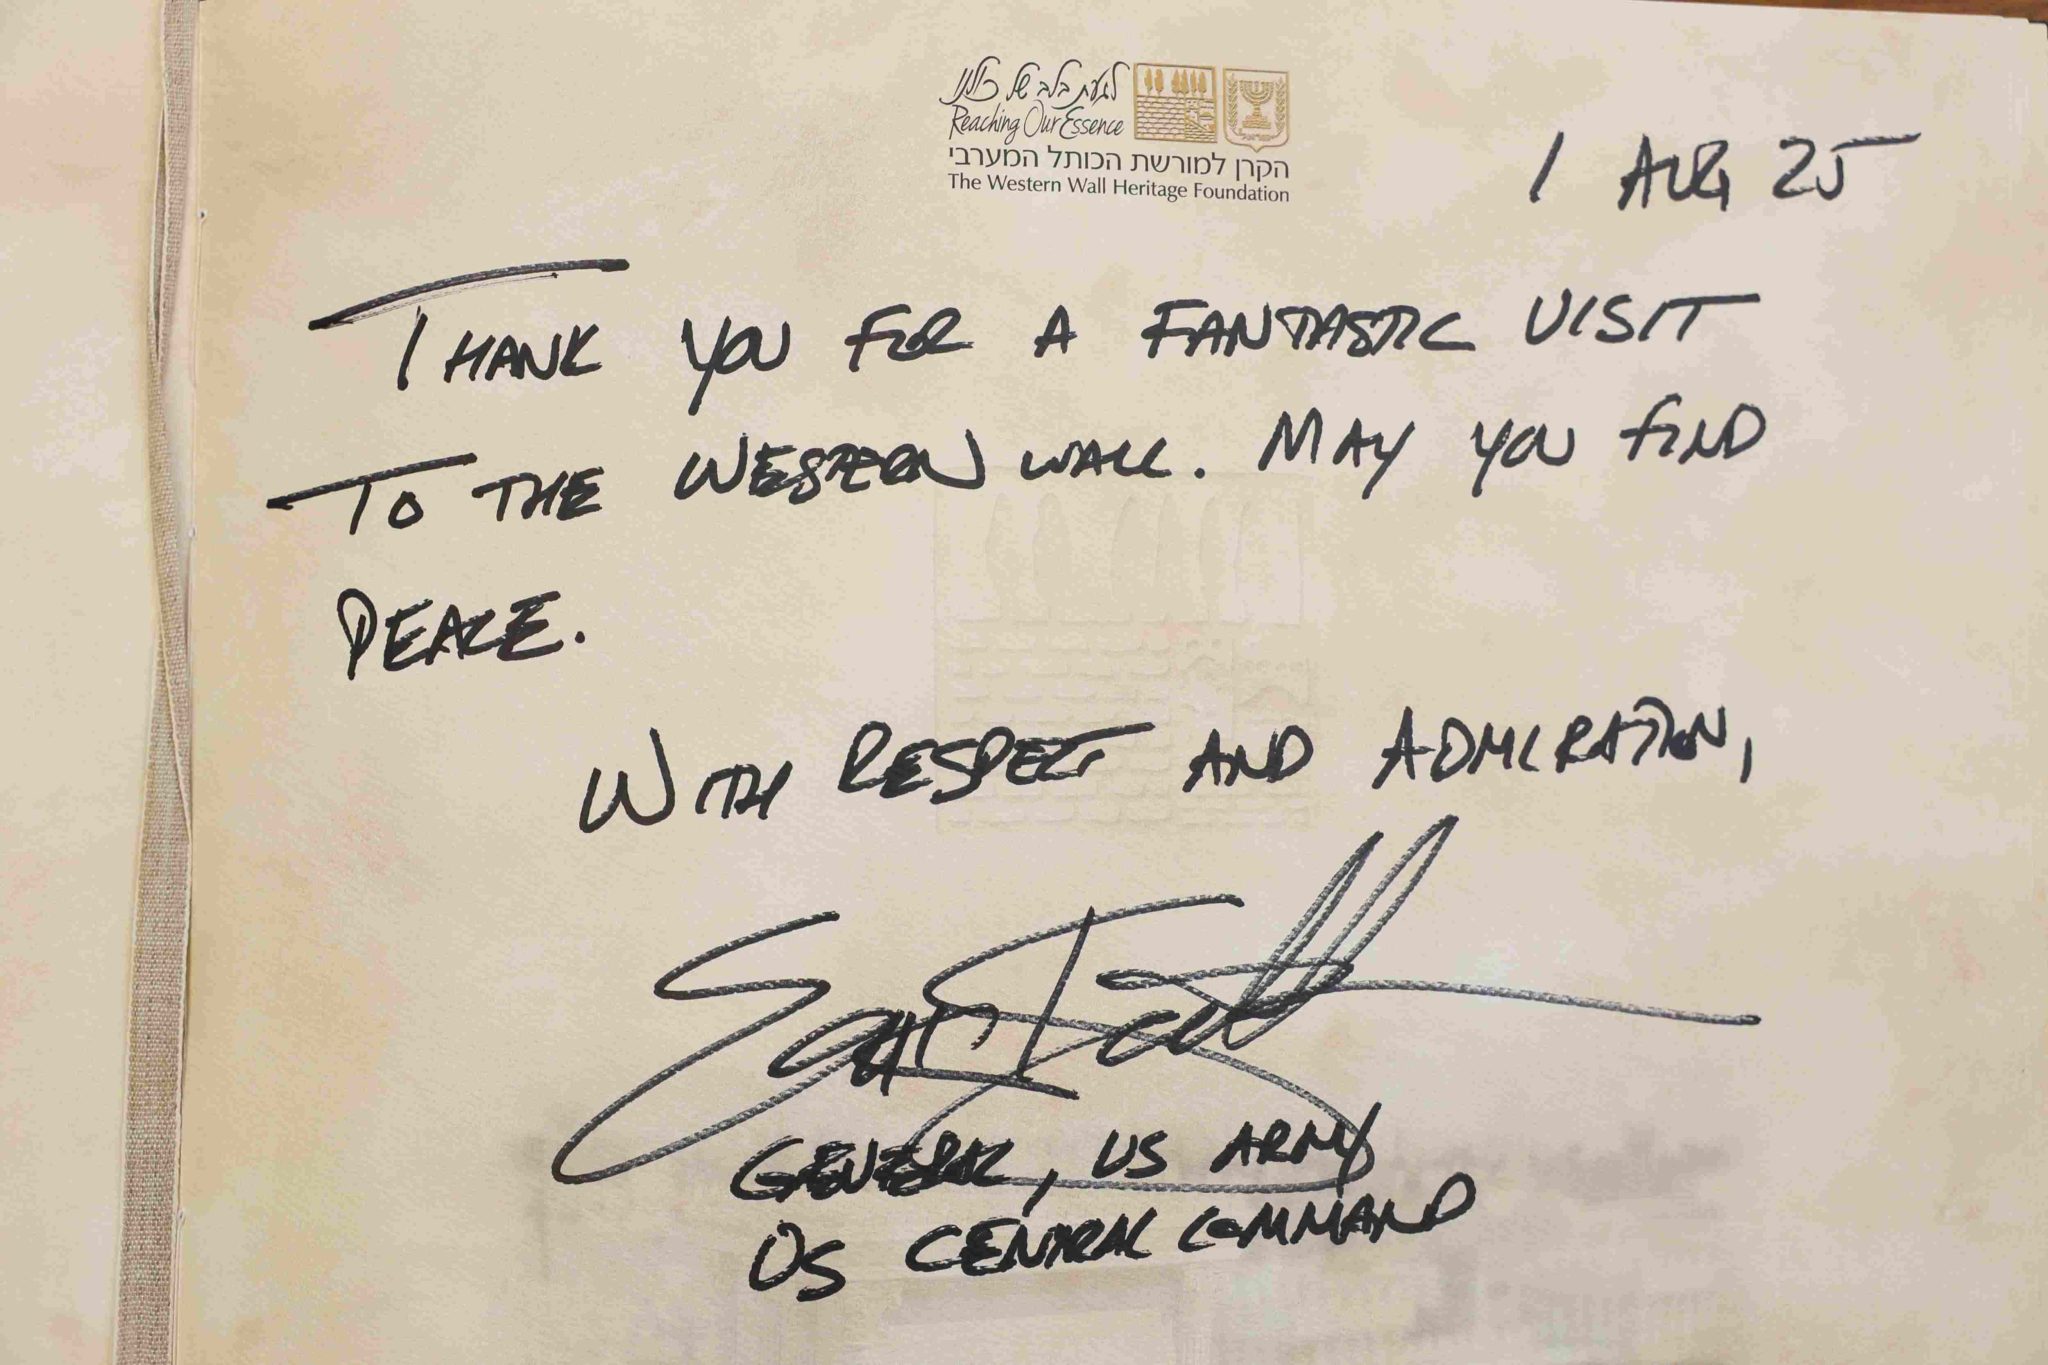 לגעת בלב של כולנו
Reaching Our Essence
הקרן למורשת הכותל המערבי
The Western Wall Heritage Foundation
1 AUG 25
THANK YOU FOR A FANTASTIC VISIT
TO THE WESTERN WALL. MAY YOU FIND
PEACE.
WITH RESPECT AND ADMIRATION,
GENERAL, US ARMY
US CENTRAL COMMAND